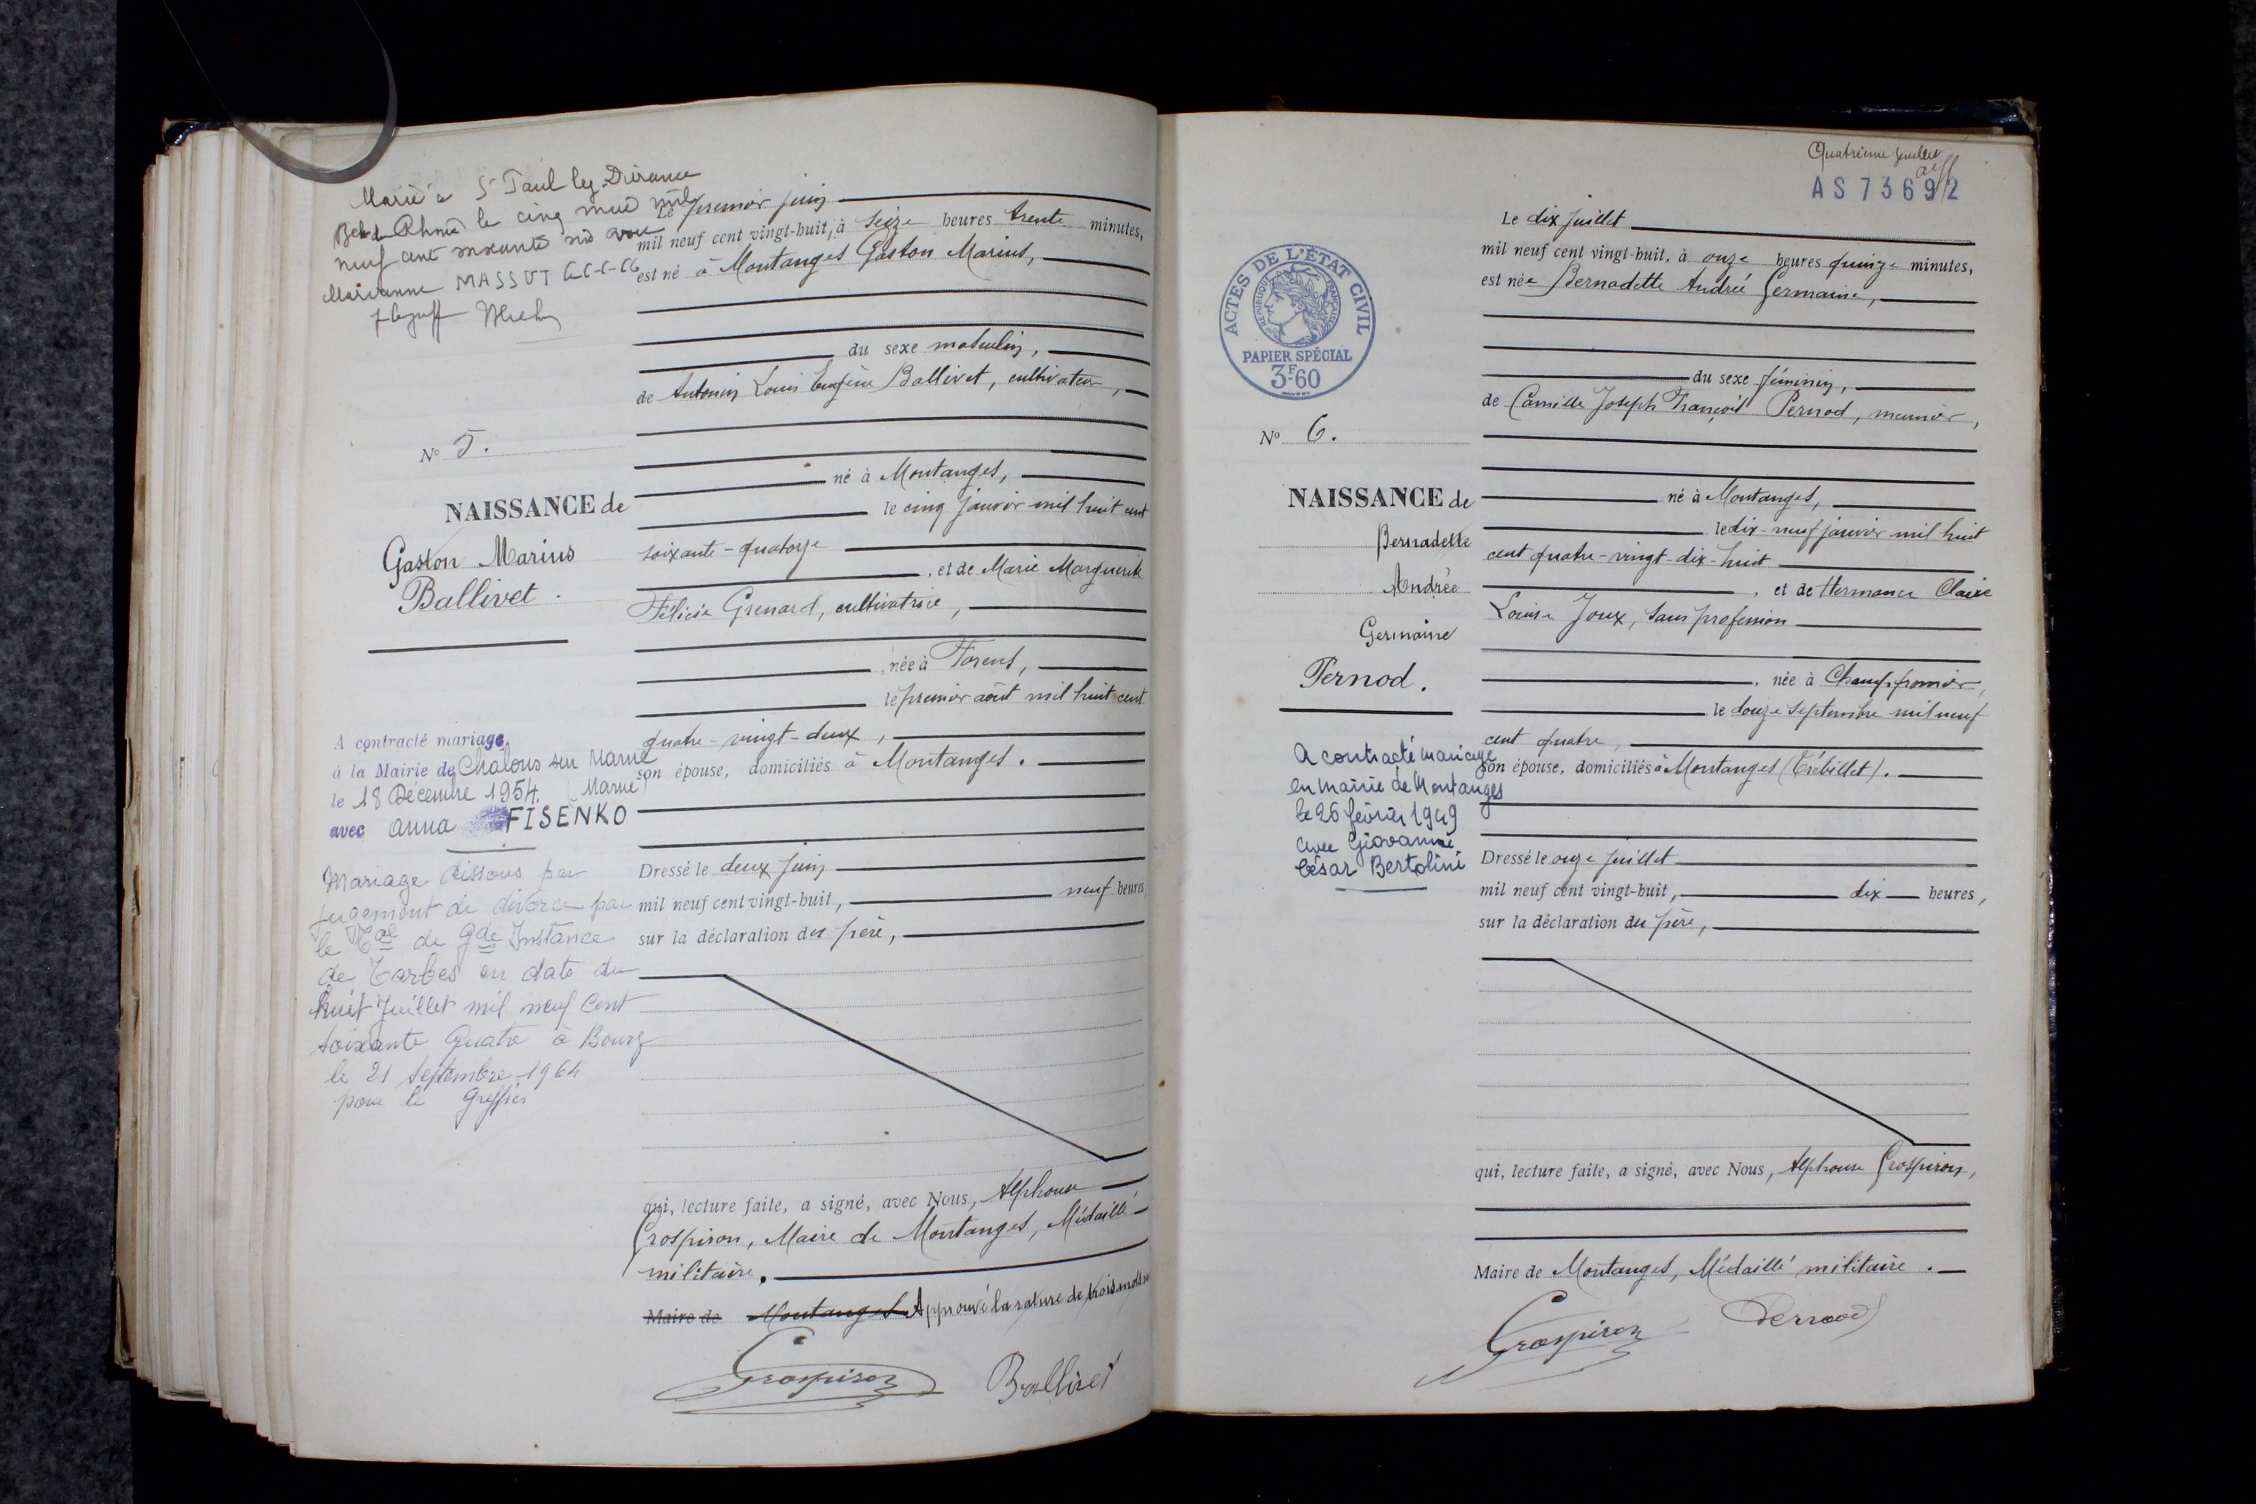 Marié à St Paul lez Durance
le cinq
neuf cent soixante six avec
Marianne MASSUT
Le premier juin
mil neuf cent vingt-huit, à seize heures trente minutes,
est né à Montanges Gaston Marius,
du sexe masculin,
de Antonin Louis Eugène Ballivet, cultivateur,
né à Montanges,
le cinq janvier mil huit cent
soixante-quatorze
, et de Marie Marguerite
Félicie Grenard, cultivatrice,
, née à Forens,
le premier août mil huit cent
quatre-vingt-deux,
son épouse, domiciliés à Montanges.
Dressé le deux juin
mil neuf cent vingt-huit, neuf heures
sur la déclaration du père,
qui, lecture faite, a signé, avec Nous, Alphonse
Grospiron, Maire de Montanges, Médaillé
militaire.
Maire de Montanges Approuvé la rature de trois mots
Grospiron Ballivet
No 5.
NAISSANCE de
Gaston Marius
Ballivet.
A contracté mariage
à la Mairie de Chalons sur Marne
le 18 Décembre 1954. (Marne)
avec anna FISENKO
Mariage dissous par
jugement de divorce par
le Tal de Gde Instance
de Tarbes en date du
huit Juillet mil neuf Cent
soixante quatre à Bourg
le 21 Septembre 1964
pour le Greffier
Quatrième feuillet
AS 73692
ACTES DE L'ÉTAT CIVIL
RÉPUBLIQUE FRANÇAISE
PAPIER SPÉCIAL
3F60
No 6.
NAISSANCE de
Bernadette
Andrée
Germaine
Pernod.
A contracté mariage
en mairie de Montanges
le 26 février 1949
avec Giovanni
César Bertolini
Le dix juillet
mil neuf cent vingt-huit, à onze heures quinze minutes,
est née Bernadette Andrée Germaine,
du sexe féminin,
de Camille Joseph François Pernod, meunier,
né à Montanges,
le dix-neuf janvier mil huit
cent quatre-vingt-dix-huit
, et de Hermance Claire
Louise Joux, sans profession
, née à Champfromier,
le douze septembre mil neuf
cent quatre,
son épouse, domiciliés à Montanges (Trébillet).
Dressé le onze juillet
mil neuf cent vingt-huit, dix heures,
sur la déclaration du père,
qui, lecture faite, a signé, avec Nous, Alphonse Grospiron,
Maire de Montanges, Médaillé militaire.
Grospiron Pernod